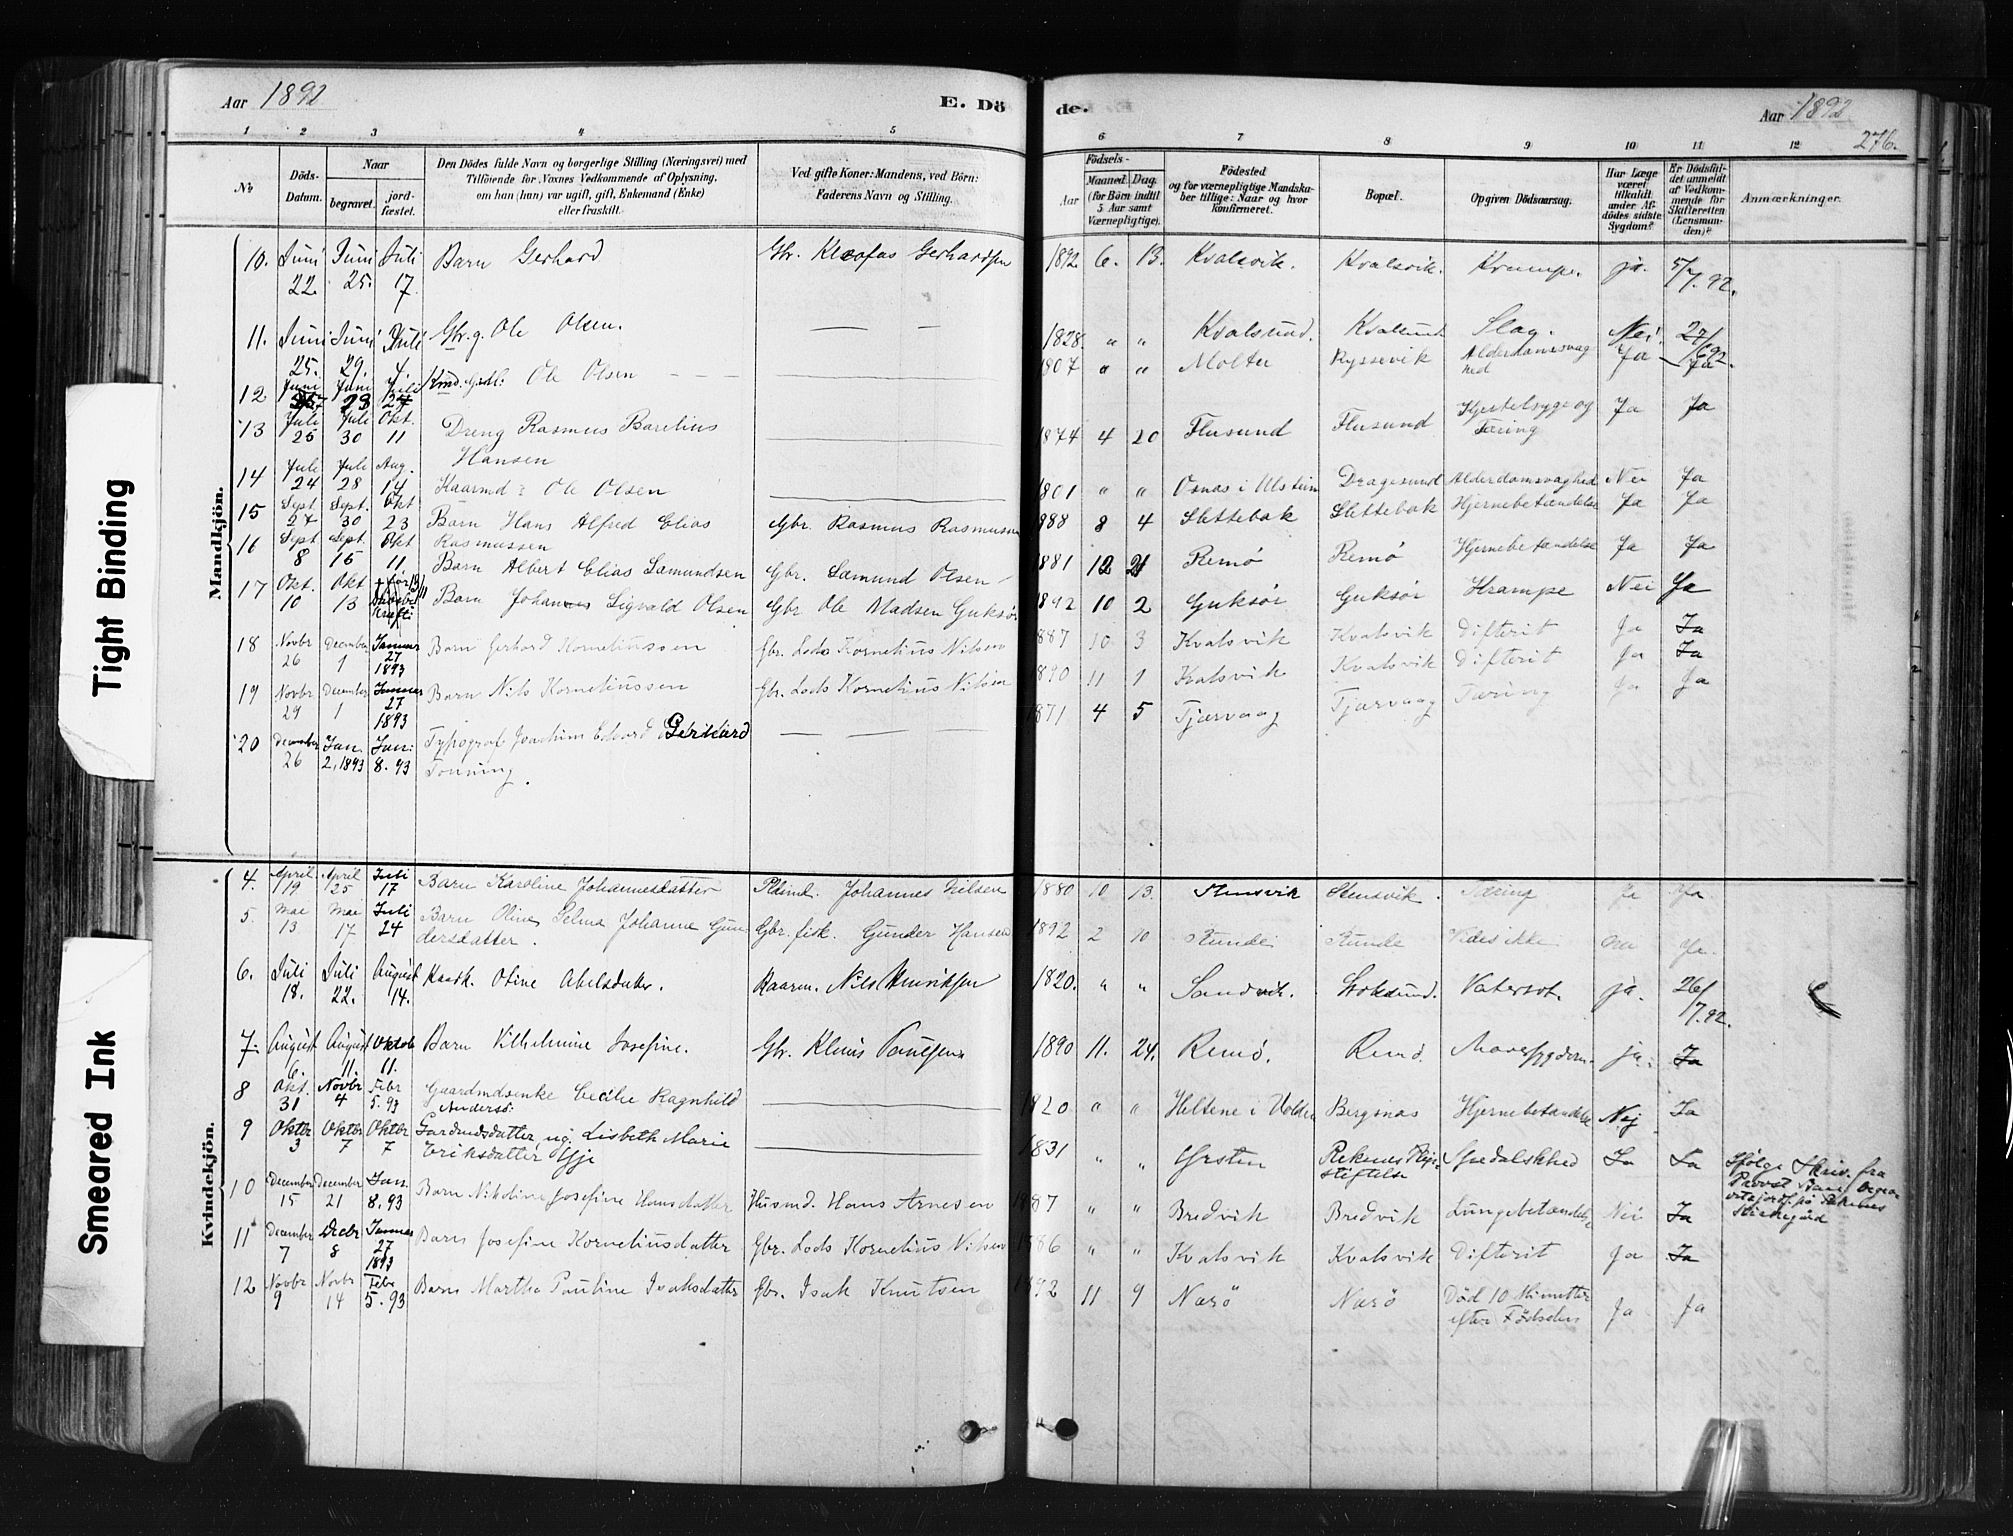 Aar 1892
E. Dö
de.
Aar 1892
276.
1 2 3 4 5 6 7 8 9 10 11 12
No
Döds-
Datum.
Naar
begravet.
jord-
fæstet.
Den Dödes fulde Navn og borgerlige Stilling (Næringsvei) med
Tilföiende for Voxnes Vedkommende af Oplysning,
om han (hun) var ugift, gift, Enkemand (Enke)
eller fraskilt.
Ved gifte Koner: Mandens, ved Börn:
Faderens Navn og Stilling.
Födsels-
Aar
Maaned.
Dag.
(for Börn indtil
5 Aar samt
Værnepligtige).
Födested
og for værnepligtige Mandska-
ber tillige: Naar og hvor
konfirmeret.
Bopæl.
Opgiven Dödsaarsag.
Har Læge
været
tilkaldt
under Af-
dödes sidste
Sygdom?
Er Dödsfal-
det anmeldt
af Vedkom-
mende for
Skifteretten
(Lensman-
den)?
Anmærkninger.
Mandkjön.
10. Juni 22. Juni 25. Juli 17. Barn Gerhard Gbr. Kleofas Gerhardsen 1892 6. 13. Kvalsvik. Kvalsvik. Krampe. ja. 5/7.92.
11. Juni 25. Juni 29. Juli 4. Gbr.g. Ole Olsen. — — 1828. " " Kvalsund. Kvalsund Slag. Nei. 27/6 92
12 Juni Juni 23 Juli Ole Olsen — — 1807 " " Molter Ryssevik Alderdomssvag
hed Ja Ja
13 Juli 25 Juli 30 Okt. 11 Dreng Rasmus Barelius
Hansen 1874 4 20 Flusund Flusund Hjertesyge og
Tæring Ja Ja
14 Juli 24 Juli 28 Aug. 14 Kaarmd: Ole Olsen 1801 " " Osnas i Ulstein Dragesund Alderdomsvaghed Nei Ja
15 Sept 27 Sept. 30 Okt 23 Barn Hans Alfred Elias
Rasmussen Gbr. Rasmus Rasmussen 1888 8 4 Slettebak Slettebak Hjernebetændelse Ja Ja
16 Sept 8 Sept. 15 Okt 11 Barn Albert Elias Samundsen Gbr. Samund Olsen 1881 12 21 Remø Remø Hjernebetændelse Ja Ja
17 Okt. 10 Okt 13 Barn Johannes Sigvald Olsen Gbr Ole Madsen Gurksør 1892 10 2 Gurksør Gurksør Krampe Nei Ja
18 Novbr 26 December 1 Januar 27 1893 Barn Gerhard Korneliussen Gbr. Lods Kornelius Nilsen 1887 10 3 Kvalsvik Kvalsvik Difterit Ja Ja
19 Novbr 29 December 1 Januar 27 1893 Barn Nils Korneliussen Gbr. Lods Kornelius Nilsen 1890 11 1 Kvalsvik Kvalsvik Difterit Ja Ja
20 December 26 Jan. 2, 1893 Jan: 8. 93 Typograf Joachim Edvard Gerhard
Tonning. — — — 1871 4 5 Tjørvaag Tjørvaag Tæring Ja Ja
Kvindekjön.
4. April 19 April 25 Juli 17 Barn Karoline Johannesdatter Johannes Nilsen 1880 10 13. Stensvik Stensvik. Tæring Ja Ja
5. Mai 13 Mai 17 Juli 24 Barn Oline Selma Johanne Gun-
dersdatter. Gbr. fisk. Gunder Hansen 1892 2 10 Runde Runde Vides ikke Ja.
6. Juli 18. Juli 22. August 14. Kaark. Oline Abelsdatter. Kaarm. Nils Henriksen 1820. " " Sandvik. Vatersot. ja. 26/7.92.
7. August 6. August 11. Oktob 11. Barn Vilhelmine Josefine. Gbr. Klaus Paulsen 1890 11. 24. Remø. Remø. Mavesygdom. ja. Ja
8 Okt. 31 Novbr 4 Febr 5. 93 Gaardmdsenke Cecilie Ragnhild
Andersd. 1820 " " Heltene i Volden Bergsnas Hjernebetændelse Nej Ja
9 Oktbr 3 Oktbr 7 Oktbr 7 Gardmdsdatter, ug. Lisbeth Marie
Eriksdatter Yje 1831 " " Ørsten Reknes Pleje-
Stiftelse Spedalskhed Ja Ja Ifølge Skriv. fra
Provst
Kirkegård
10 December 15 December 21 Jan. 8. 93 Barn Nikoline Josefine Hansdatter Husmd. Hans Arnesen 1887 " " Bredvik Bredvik Lungebetændelse Nei Ja
11 December 7 Decbr 8 Januar 27 1893 Barn Josefine Korneliusdatter Gbr. Lods Kornelius Nilsen 1886 " " Kvalsvik Kvalsvik Difterit Ja Ja
12 Novbr 9 Novbr 14 Febr 5. 93 Barn Martha Pauline Isaksdatter Gbr. Isak Knutsen 1892 11 9 Nærø Nærø Død 10 Minutter
efter Fødselen Ja Ja
Tight Binding
Smeared Ink